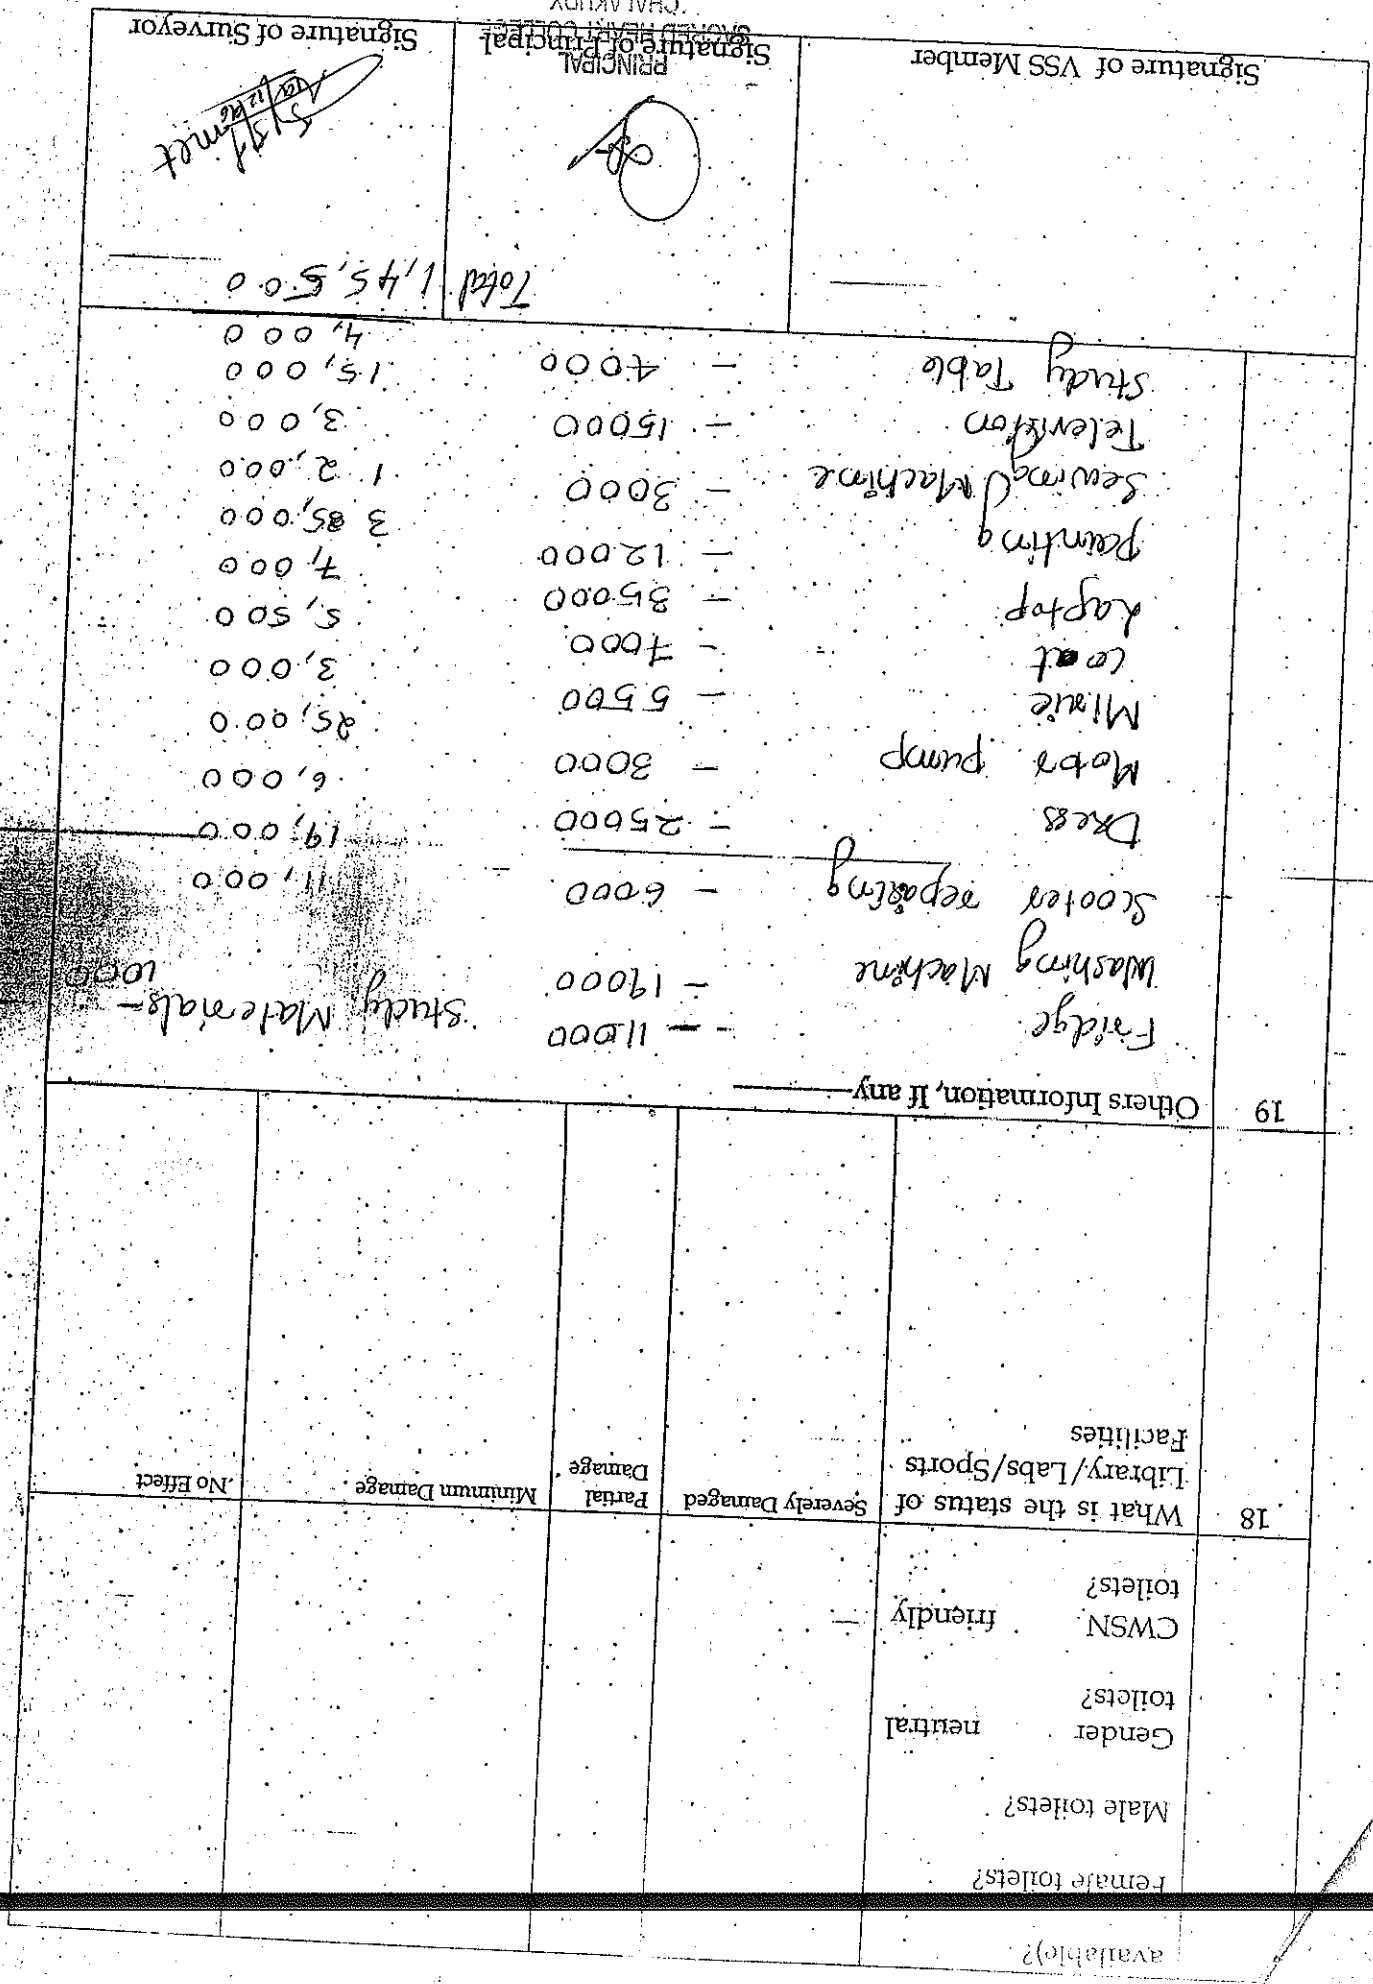 available)?
Female toilets?
Male toilets?
Gender neutral
toilets?
CWSN friendly
toilets?
18 What is the status of Library/Labs/Sports Facilities Severely Damaged Partial Damage Minimum Damage No Effect
19 Others Information, If any
Fridge - 11000 Study Materials - 1000
Washing Machine - 19000
Scooter repairing - 6000 11,000
Dress - 25000 19,000
Motor pump - 3000 6,000
Mixie - 5500 25,000
Coat - 7000 3,000
Laptop - 35000 5,500
painting - 12000 7,000
Sewing Machine - 3000 35,000
Television - 15000 12,000
Study Table - 4000 3,000
15,000
4,000
Total 1,45,500
PRINCIPAL
Signature of VSS Member Signature of Principal Signature of Surveyor
SACRED HEART COLLEGE
CHALAKUDY